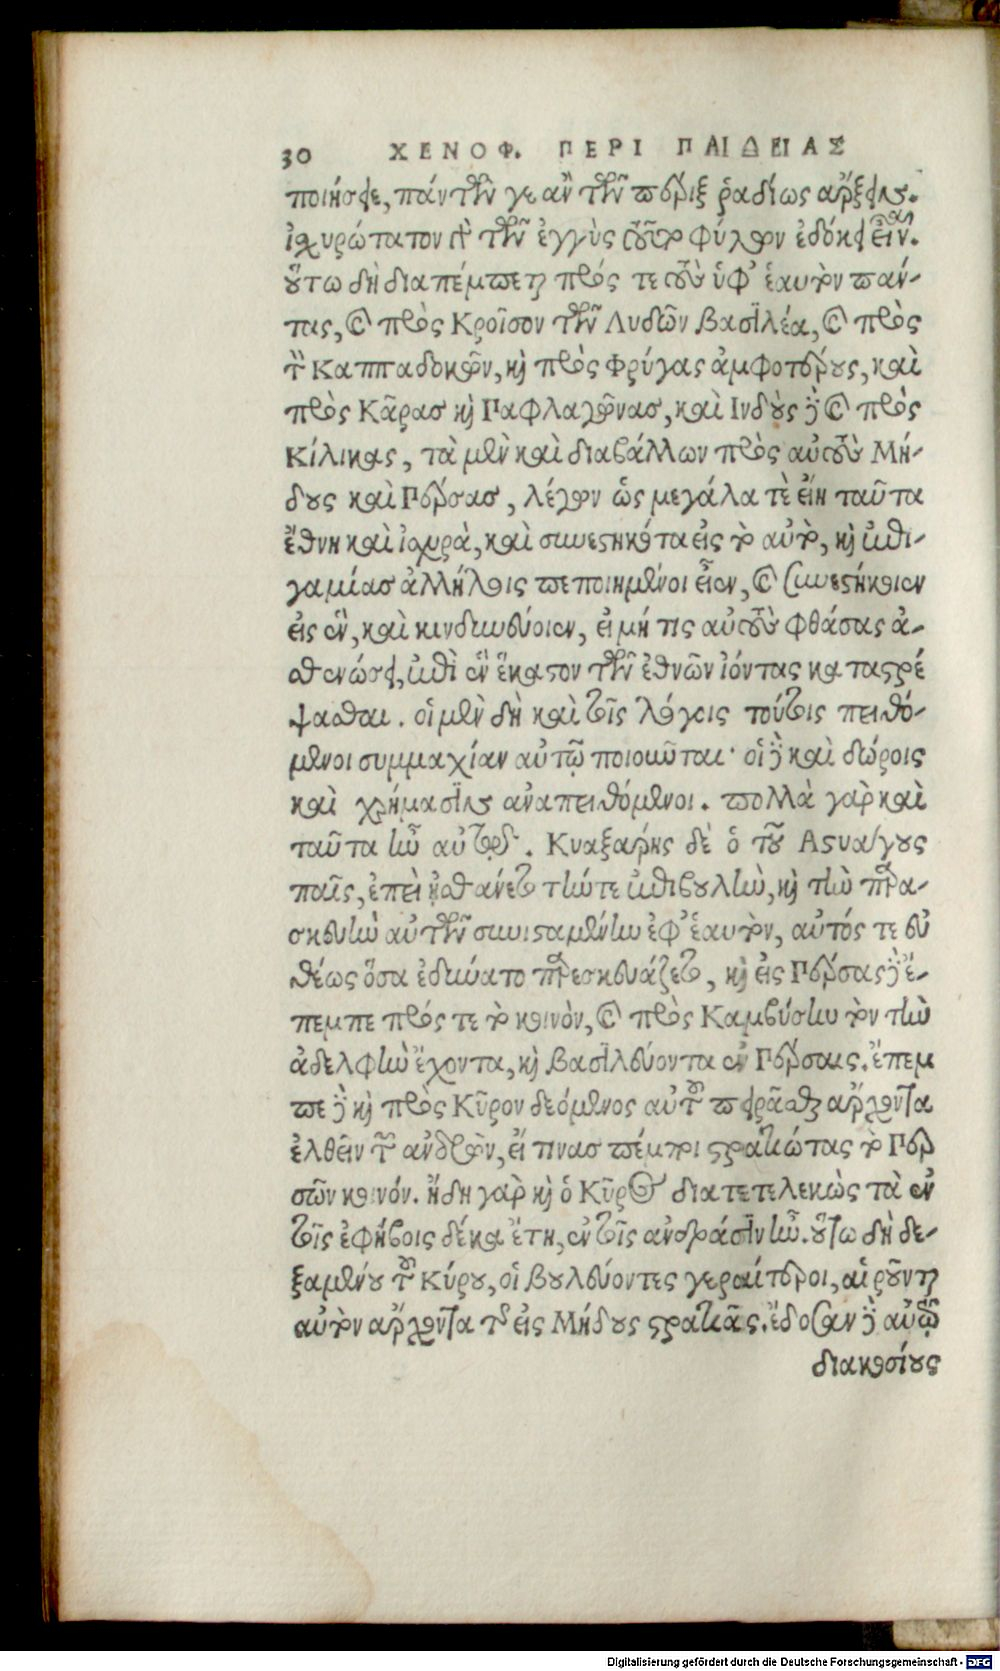 30 ΧΕΝΟΦ. ΠΕΡΙ ΠΑΙΔΕΙΑΣ
ποιήσειε, πάντων γε ἂν τῶν πέριξ ῥαδίως ἄρξειν.
ἰσχυρότατον γὰρ τῶν ἐγγὺς τοῦτο φύλον ἐδόκει εἶναι.
οὕτω δὴ διαπέμπεται πρός τε τοὺς ὑφ' ἑαυτὸν πάν-
τας, καὶ πρὸς Κροῖσον τὸν Λυδῶν βασιλέα, καὶ πρὸς
τὸν Καππαδοκῶν, καὶ πρὸς Φρύγας ἀμφοτέρους, καὶ
πρὸς Κᾶρας καὶ Παφλαγόνας, καὶ Ινδοὺς δὲ καὶ πρὸς
Κίλικας, τὰ μὲν καὶ διαβάλλων πρὸς αὐτοὺς Μή-
δους καὶ Πέρσας, λέγων ὡς μεγάλα τὲ εἴη ταῦτα
ἔθνη καὶ ἰσχυρὰ, καὶ συνεστηκότα εἰς τὸ αὐτὸ, καὶ ἐπι-
γαμίας ἀλλήλοις πεποιημένοι εἶεν, καὶ συνεστήκοιεν
εἰς ἓν, καὶ κινδυνεύοιεν, εἰ μή τις αὐτοὺς φθάσας ἀ-
σθενώσει, ἐπὶ ἓν ἕκαστον τῶν ἐθνῶν ἰόντας καταστρέ
ψασθαι. οἱ μὲν δὴ καὶ τοῖς λόγοις τούτοις πειθό-
μενοι συμμαχίαν αὐτῷ ποιοῦνται· οἱ δὲ καὶ δώροις
καὶ χρήμασιν ἀναπειθόμενοι. πολλὰ γὰρ καὶ
ταῦτα ἦν αὐτῷ. Κυαξάρης δὲ ὁ τοῦ Αστυάγους
παῖς, ἐπεὶ ᾐσθάνετο τήν τε ἐπιβουλὴν, καὶ τὴν παρα-
σκευὴν αὐτῶν συνισταμένην ἐφ' ἑαυτὸν, αὐτός τε εὐ
θέως ὅσα ἐδύνατο παρεσκευάζετο, καὶ εἰς Πέρσας δὲ ἔ-
πεμπε πρός τε τὸ κοινὸν, καὶ πρὸς Καμβύσην τὸν τὴν
ἀδελφὴν ἔχοντα, καὶ βασιλεύοντα ἐν Πέρσαις. ἔπεμ
πε δὲ καὶ πρὸς Κῦρον δεόμενος αὐτοῦ πειρᾶσθαι ἄρχοντα
ἐλθεῖν τῶν ἀνδρῶν, εἴ τινας πέμποι στρατιώτας τὸ Περ
σῶν κοινόν. ἤδη γὰρ καὶ ὁ Κῦρος διατετελεκὼς τὰ ἐν
τοῖς ἐφήβοις δέκα ἔτη, ἐν τοῖς ἀνδράσιν ἦν. οὕτω δὴ δε-
ξαμένου τοῦ Κύρου, οἱ βουλεύοντες γεραίτεροι, αἱροῦνται
αὐτὸν ἄρχοντα τῆς εἰς Μήδους στρατιᾶς. ἔδοσαν δὲ αὐτῷ
διακοσίους
Digitalisierung gefördert durch die Deutsche Forschungsgemeinschaft - DFG